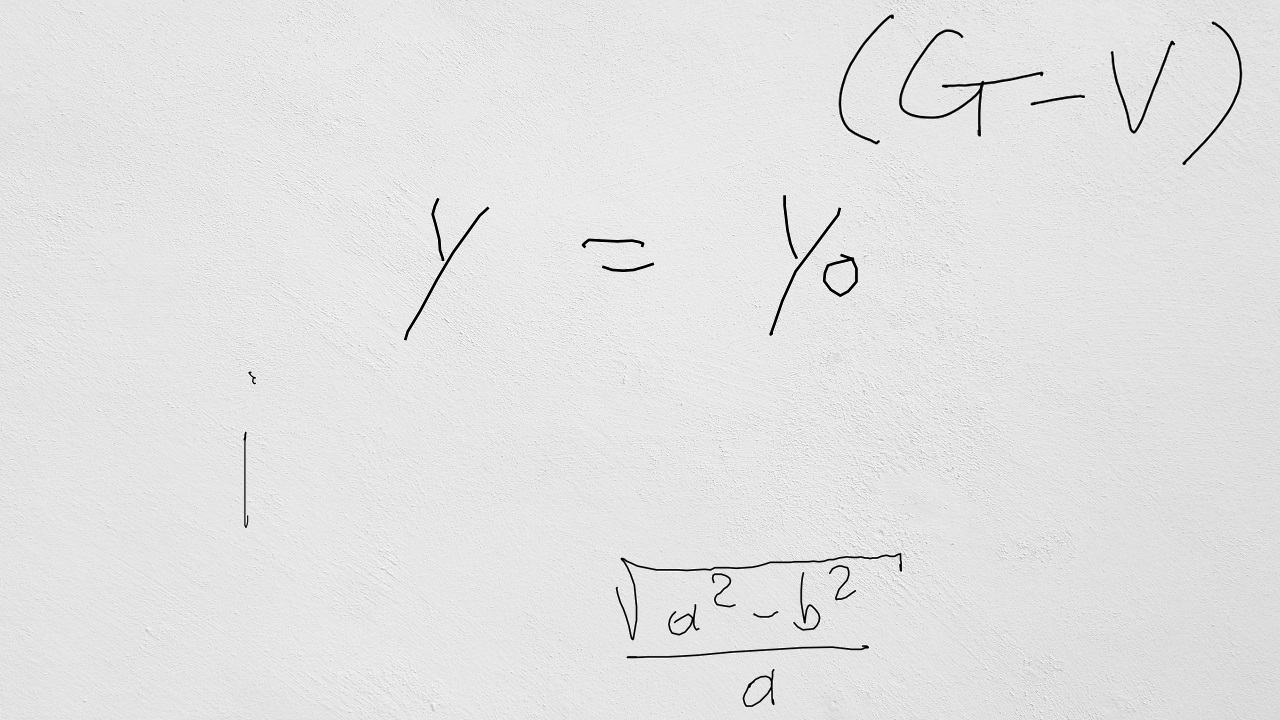 (G-V)
y = y₀
i
√(a² - b²) / a